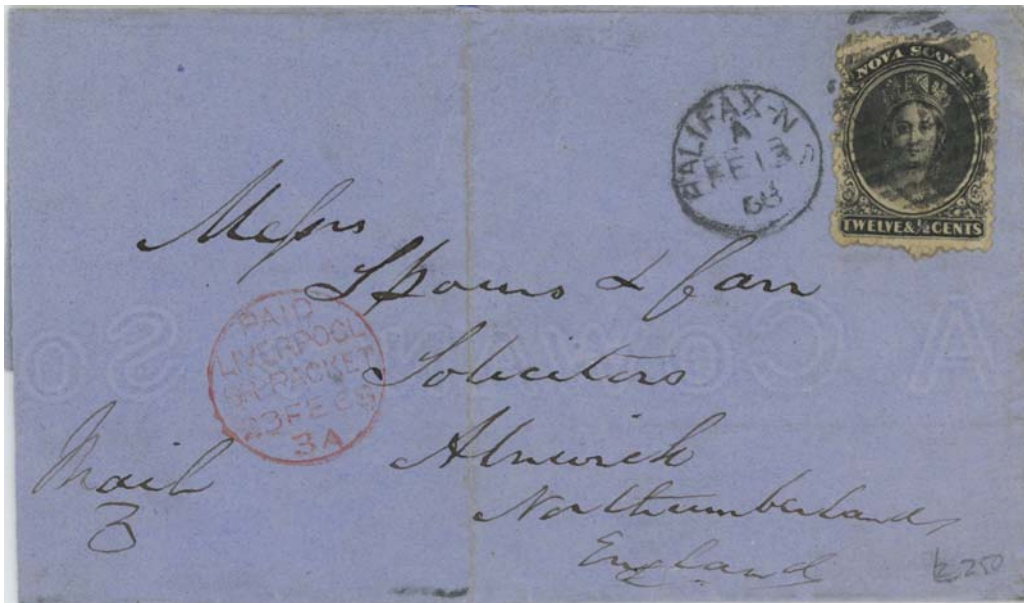 NOVA SCOTIA
TWELVE & ½ CENTS
HALIFAX-N S
A
FE 13
68
Messrs
Spours & Carr
Solicitors
Alnwick
Northumberland
England
PAID
LIVERPOOL
BR. PACKET
23 FE 68
3A
Mail
3
A Cowan & So
£250